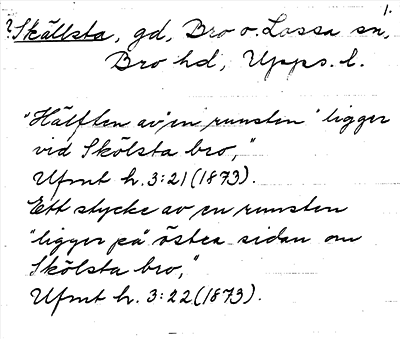 1.
? Skällsta, gd, Bro o. Lossa sn,
Bro hd, Upps. l.
"Hälften av en runsten" ligger
vid Skölsta bro,"
Ufmt h. 3:21 (1873).
Ett stycke av en runsten
"ligger på östra sidan om
Skölsta bro,"
Ufmt h. 3:22 (1873).